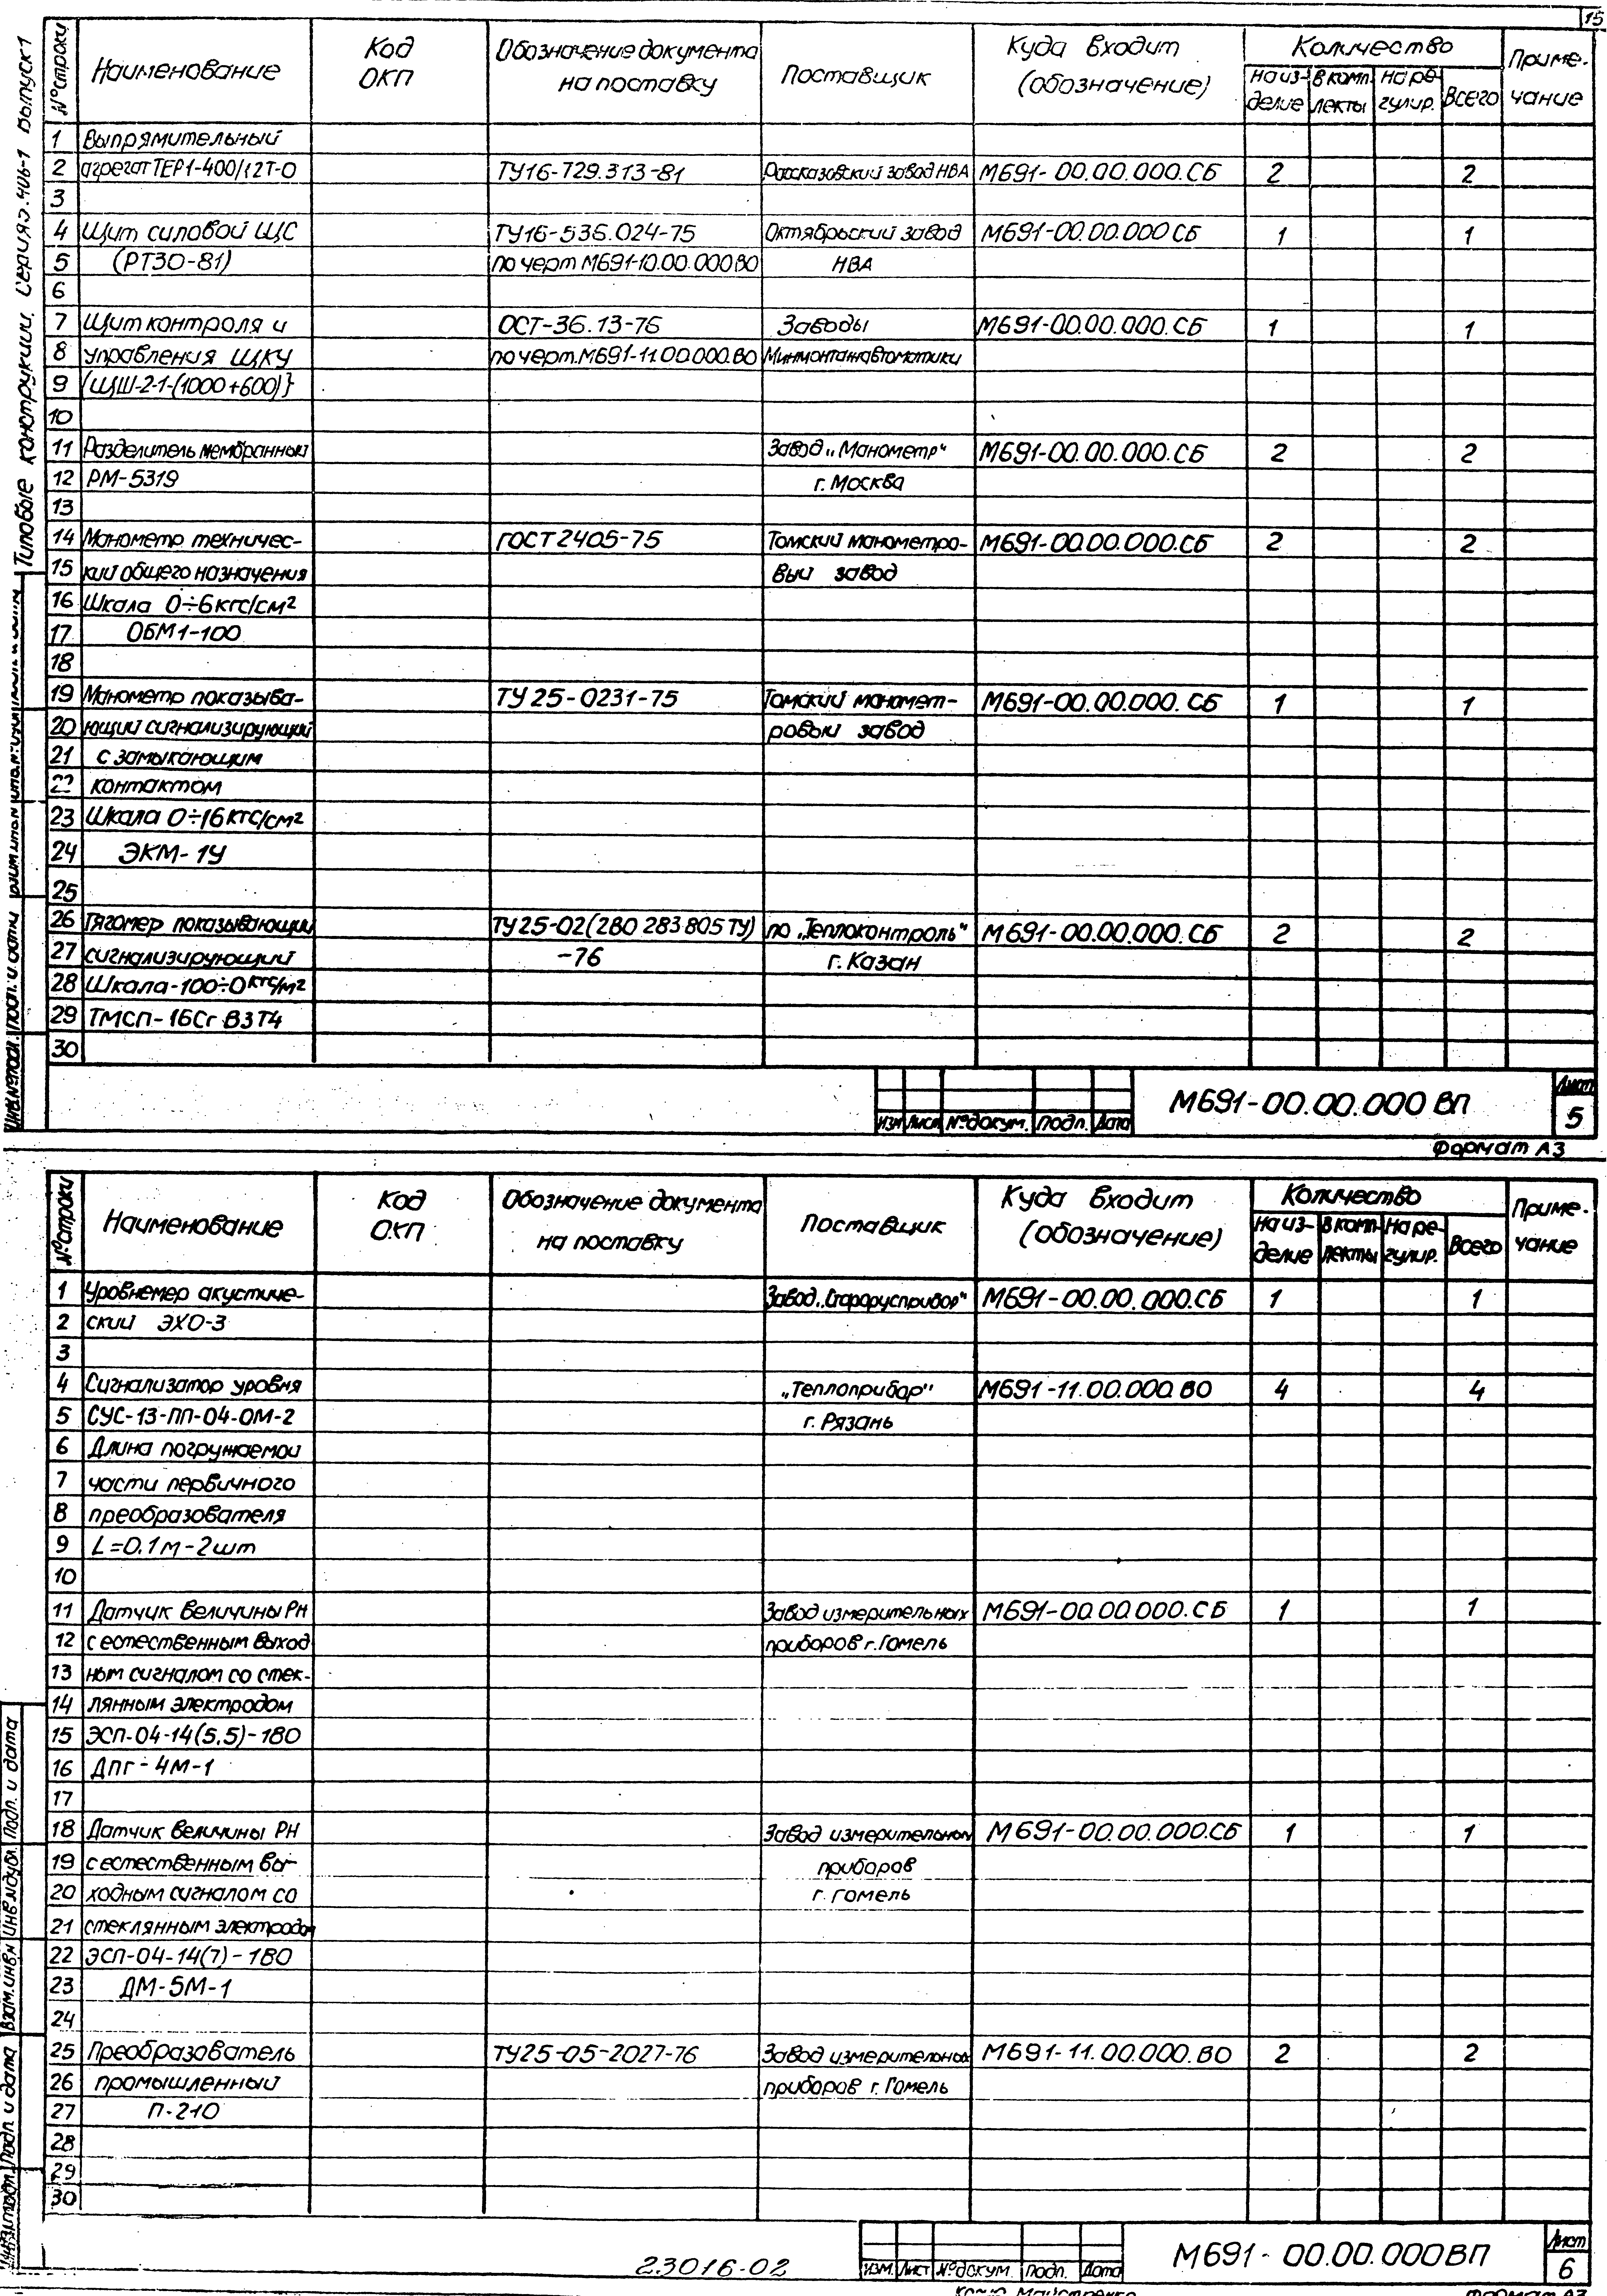 15
Типовые конструкции. Серия 3.406-1 Выпуск 1
№ строки Наименование Код ОКП Обозначение документа на поставку Поставщик Куда входит (обозначение) Количество Приме-чание
на из-делие в комп-лекты на ре-гулир. Всего
1 Выпрямительный
2 агрегат ТЕР1-400/12Т-О ТУ16-729.313-81 Рассказовский завод НВА М691-00.00.000.СБ 2 2
3
4 Щит силовой ЩС ТУ16-536.024-75 Октябрьский завод М691-00.00.000СБ 1 1
5 (РТ30-81) по черт М691-10.00.000ВО НВА
6
7 Щит контроля и ОСТ-36.13-76 Заводы М691-00.00.000.СБ 1 1
8 управления ЩКУ по черт.М691-11.00.000.ВО Минмонтажавтоматики
9 (ЩШ-2-1-(1000+600)}
10
11 Разделитель мембранный Завод „Манометр" М691-00.00.000.СБ 2 2
12 РМ-5319 г. Москва
13
14 Манометр техничес- ГОСТ 2405-75 Томский манометро- М691-00.00.000.СБ 2 2
15 кий общего назначения вый завод
16 Шкала 0÷6 кгс/см²
17 ОБМ1-100
18
19 Манометр показыва- ТУ 25-0231-75 Томский маномет- М691-00.00.000.СБ 1 1
20 ющий сигнализирующий ровый завод
21 с замыкающим
22 контактом
23 Шкала 0÷16 кгс/см²
24 ЭКМ-1У
25
26 Тягомер показывающий ТУ25-02(2В0 283.805 ТУ) по „Теплоконтроль" М691-00.00.000.СБ 2 2
27 сигнализирующий -76 г. Казан
28 Шкала-100÷0 кгс/м²
29 ТМСП-16Сг В3Т4
30
Изм Лист № докум. Подп. Дата М691-00.00.000 ВП Лист 5
Инв.№ подл. Подп. и дата
Формат А3
№ строки Наименование Код ОКП Обозначение документа на поставку Поставщик Куда входит (обозначение) Количество Приме-чание
на из-делие в комп-лекты на ре-гулир. Всего
1 Уровнемер акустиче- Завод „Старорусприбор" М691-00.00.000.СБ 1 1
2 ский ЭХО-3
3
4 Сигнализатор уровня „Теплоприбор" М691-11.00.000.ВО 4 4
5 СУС-13-ПП-04-ОМ-2 г. Рязань
6 Длина погружаемой
7 части первичного
8 преобразователя
9 L=0.1м-2шт
10
11 Датчик величины РН Завод измерительных М691-00.00.000.СБ 1 1
12 с естественным выход приборов г. Гомель
13 ным сигналом со стек-
14 лянным электродом
15 ЭСП-04-14(5.5)-1ВО
16 Дпг-4М-1
17
18 Датчик величины РН Завод измерительных М691-00.00.000.СБ 1 1
19 с естественным вы- приборов
20 ходным сигналом со г. Гомель
21 стеклянным электродом
22 ЭСП-04-14(7)-1ВО
23 ДМ-5М-1
24
25 Преобразователь ТУ25-05-2027-76 Завод измерительных М691-11.00.000.ВО 2 2
26 промышленный приборов г. Гомель
27 П-210
28
29
30
Инв.№ подл. Подп. и дата Взам.инв.№ Инв.№ дубл. Подп. и дата
23016-02
Изм. Лист № докум. Подп. Дата М691-00.00.000ВП Лист 6
Формат А3